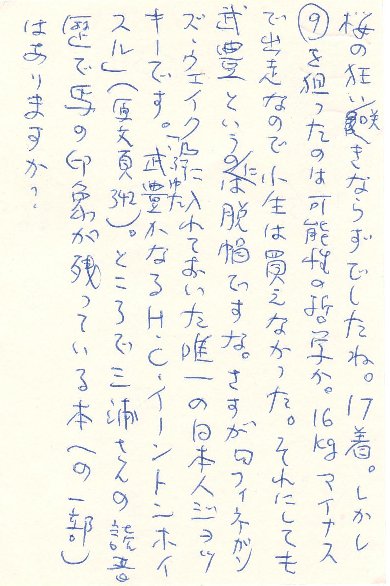 桜の狂い咲きならずでしたね。17着。しかし
⑨を狙ったのは可能性の哲学か。16kgマイナス
で出走なので小生は買えなかった。それにしても
武豊というのには脱帽ですな。さすが『フィネガン
ズ・ウェイク』に入れておいた唯一の日本人ジョッ
キーです。「武豊かなるH・C・イーントンホイ
スル」(原文頁342)。ところで三浦さんの読書
歴で馬の印象が残っている本(の一部)
はありますか?